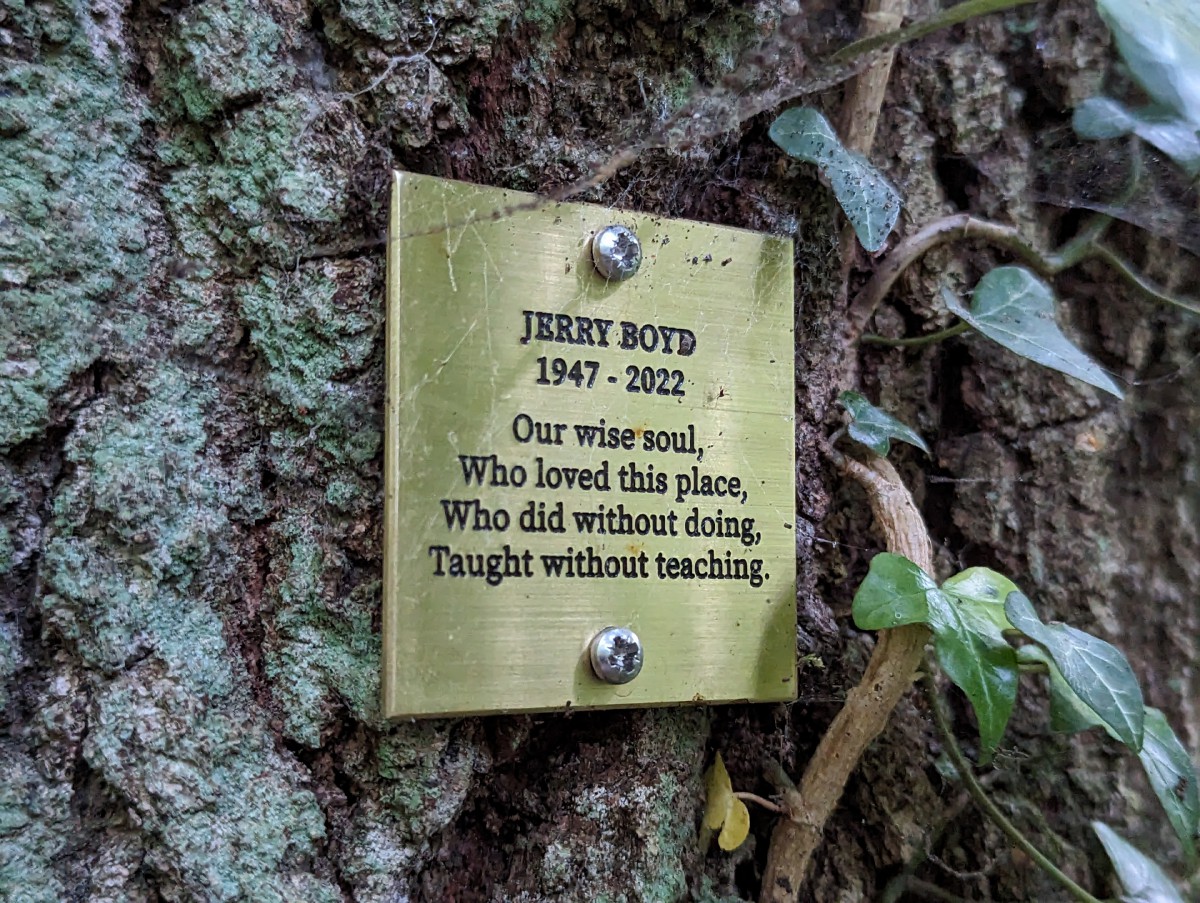 JERRY BOYD
1947 - 2022
Our wise soul,
Who loved this place,
Who did without doing,
Taught without teaching.